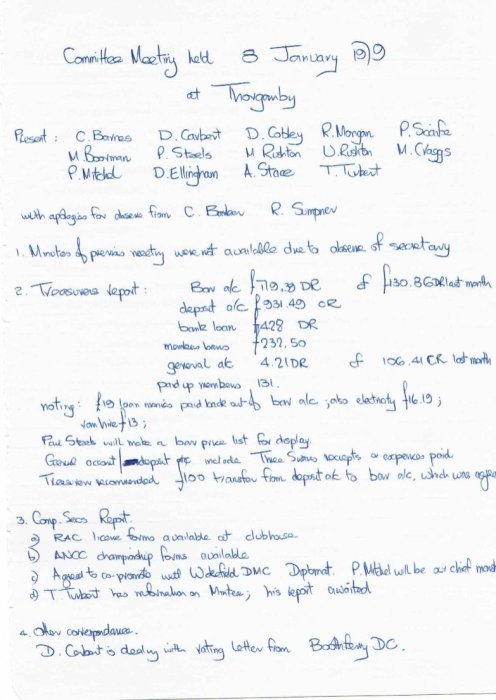 Committee Meeting held 8 January 1979
at Thorganby
Present : C. Barnes D. Corbert D. Cobley R. Morgan P. Scaife
M. Boorman P. Steels M Rishton U. Rishton M. Craggs
P. Mitchel D. Ellingham A. Stace T. Turbert
with apologies for absence from C. R. Sumpner
1. Minutes of previous meeting were not available due to absence of secretary
2. Treasurers report : Bar a/c £119.39 DR cf £130.86 DR last month
deposit a/c £931.49 CR
bank loan £428 DR
members loans £232.50
general ac 4.21 DR cf 106.41 CR last month
paid up members 131.
noting : £19 loan monies paid back out of bar a/c ; also electricity £16.19 ;
van hire £13 ;
Paul Steels will make a bar price list for display.
General account / deposit include Three Swans receipts or expences paid
Treasurer recommended £100 transfer from deposit ac to bar a/c, which was agreed
3. Comp. Secs Report.
a) RAC license forms available at clubhouse
b) ANCC championship forms available
c) Agreed to co-promote with Wakefield DMC Diplomat. P. Mitchel will be our chief
d) T. Turbert has information on ; his report awaited
4. Other correspondance.
D. Corbert is dealing with rating letter from Boothferry DC.